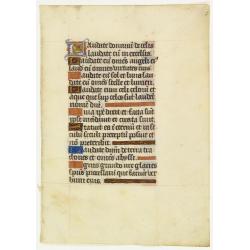 Laudate dominū de celis
laudate eū in excelsis
Laudate eū om̄es angeli eius
laudate eū om̄es virtutes eius
Laudate eū sol et luna lau
date eū om̄es stelle et lumen
Laudate eum celi celorū et
aque que sup celos sūt laudēt
nomen dn̄i
Quia ip̄e dixit et facta sūt
ipse mādauit et creata sunt
Statuit ea ī eternū et in se
culū seculi preceptū posuit et
nō preteribit
Laudate dn̄m de terra dra
cones et om̄es abyssi
Ignis grando nix glacies
sp̄us procellarū que faciūt ver
bum eius